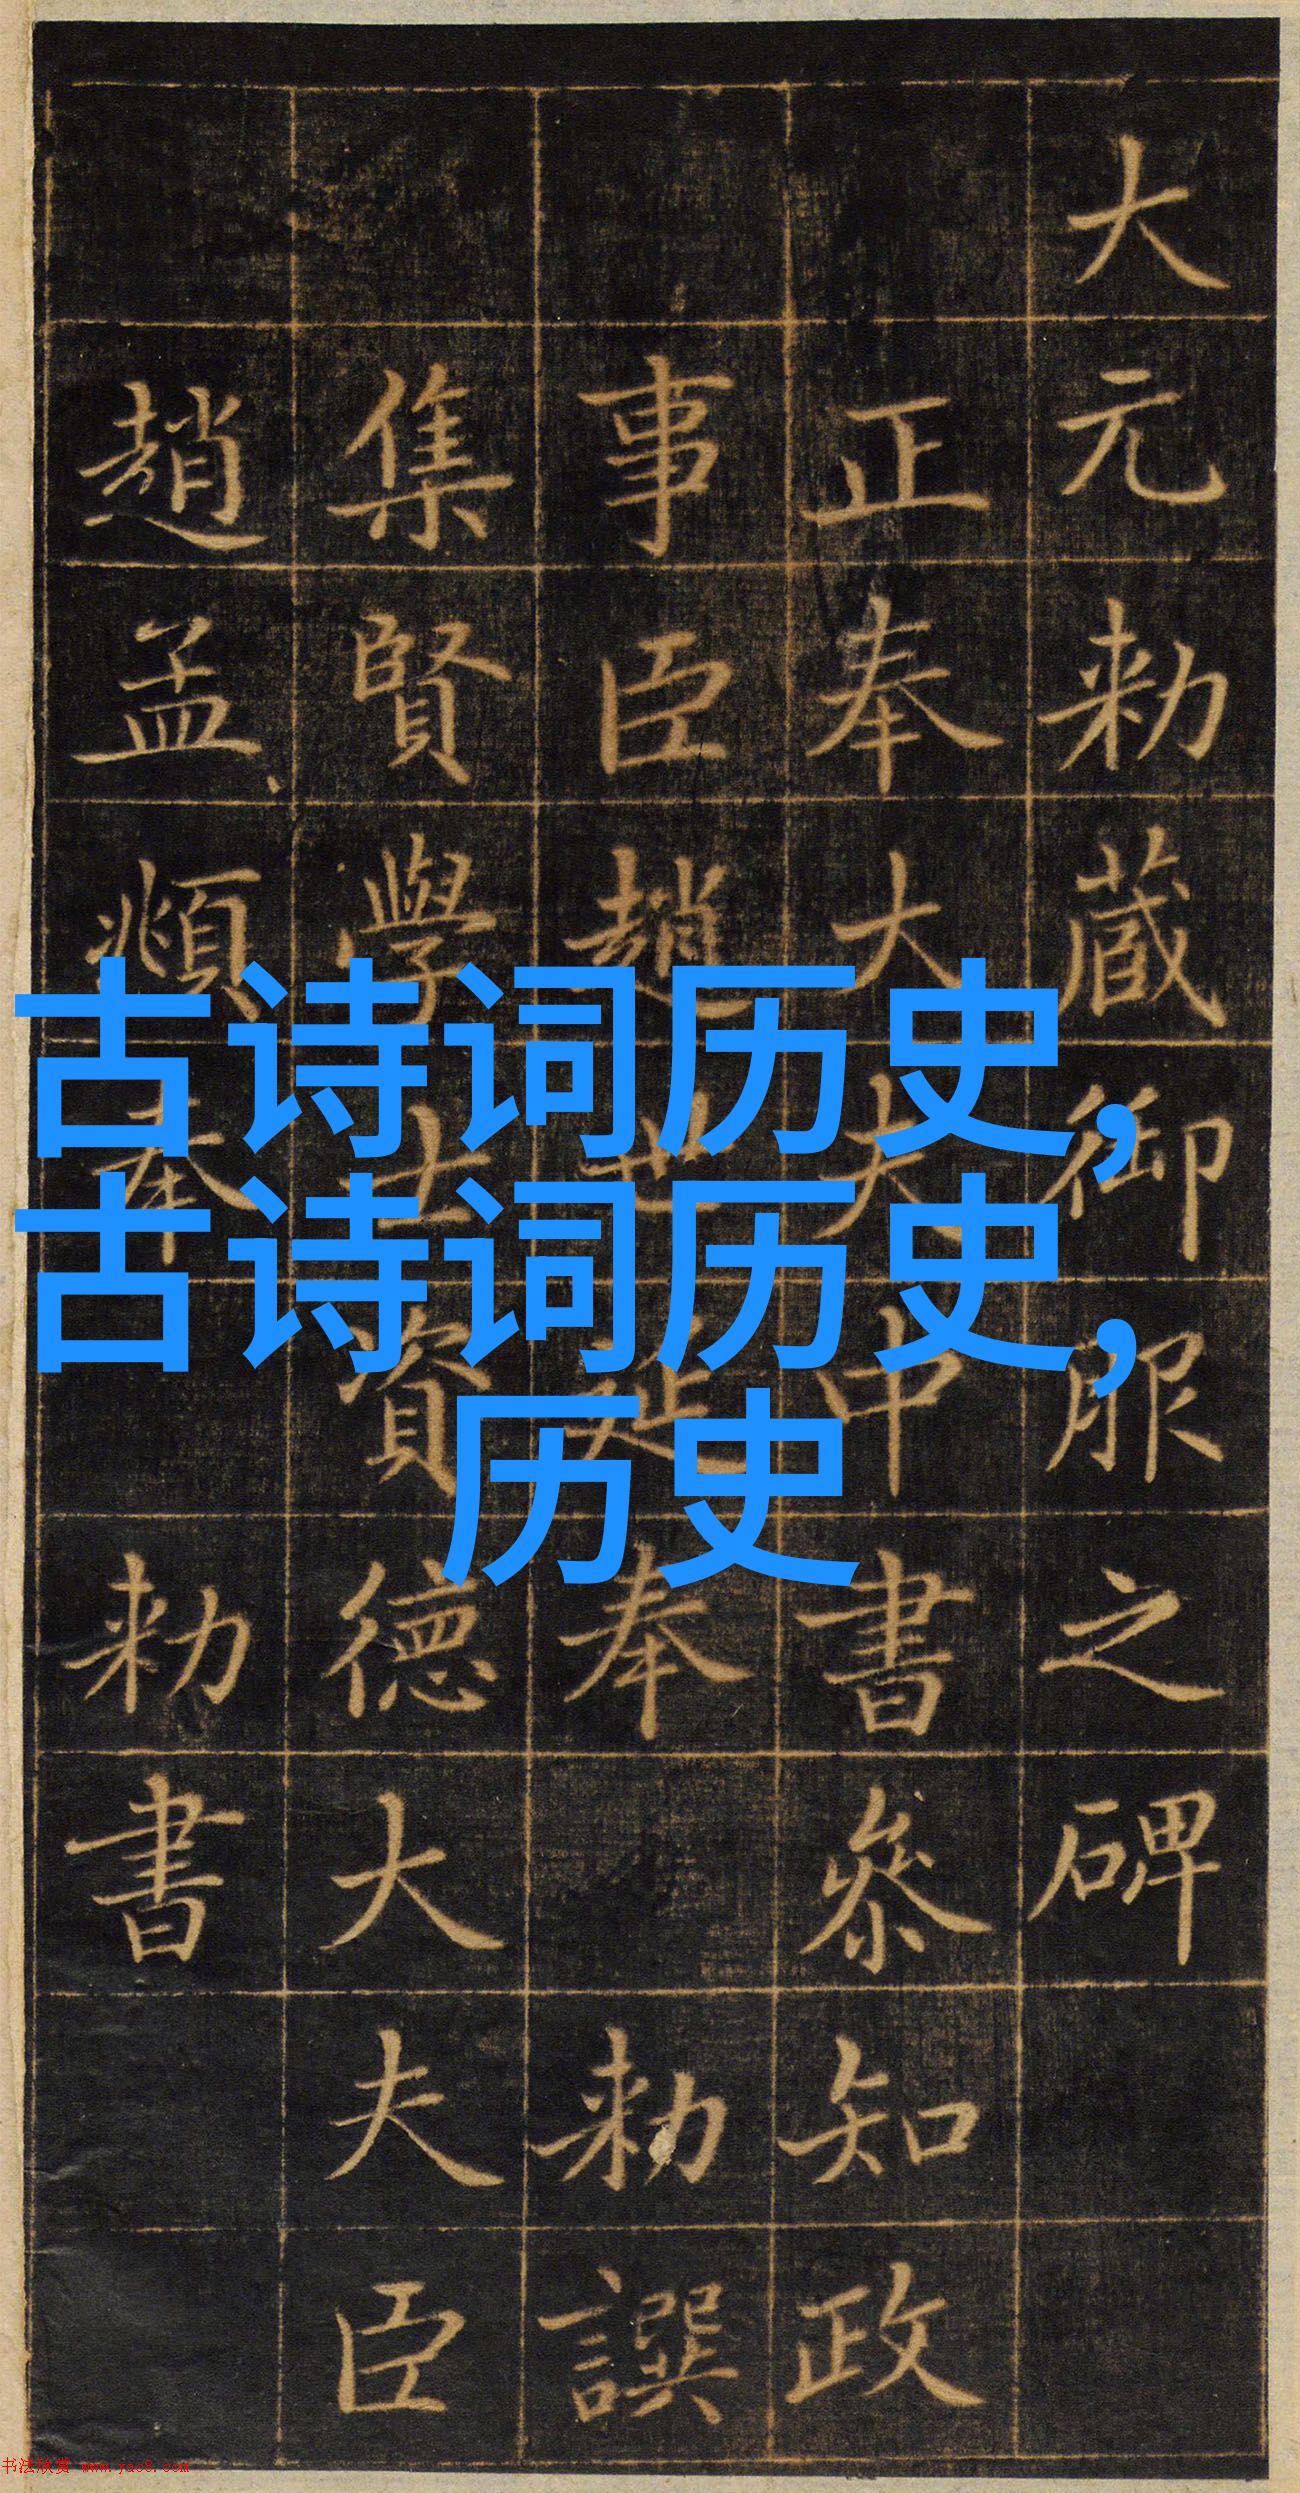 大元勅蔵御服之碑
正奉大夫中書叅知政
事臣趙世延奉 勅譔
集賢學士資德大夫臣
趙孟頫奉 勅書
古诗词历史,
古诗词历史,
历史
书法欣赏 www.yac8.com